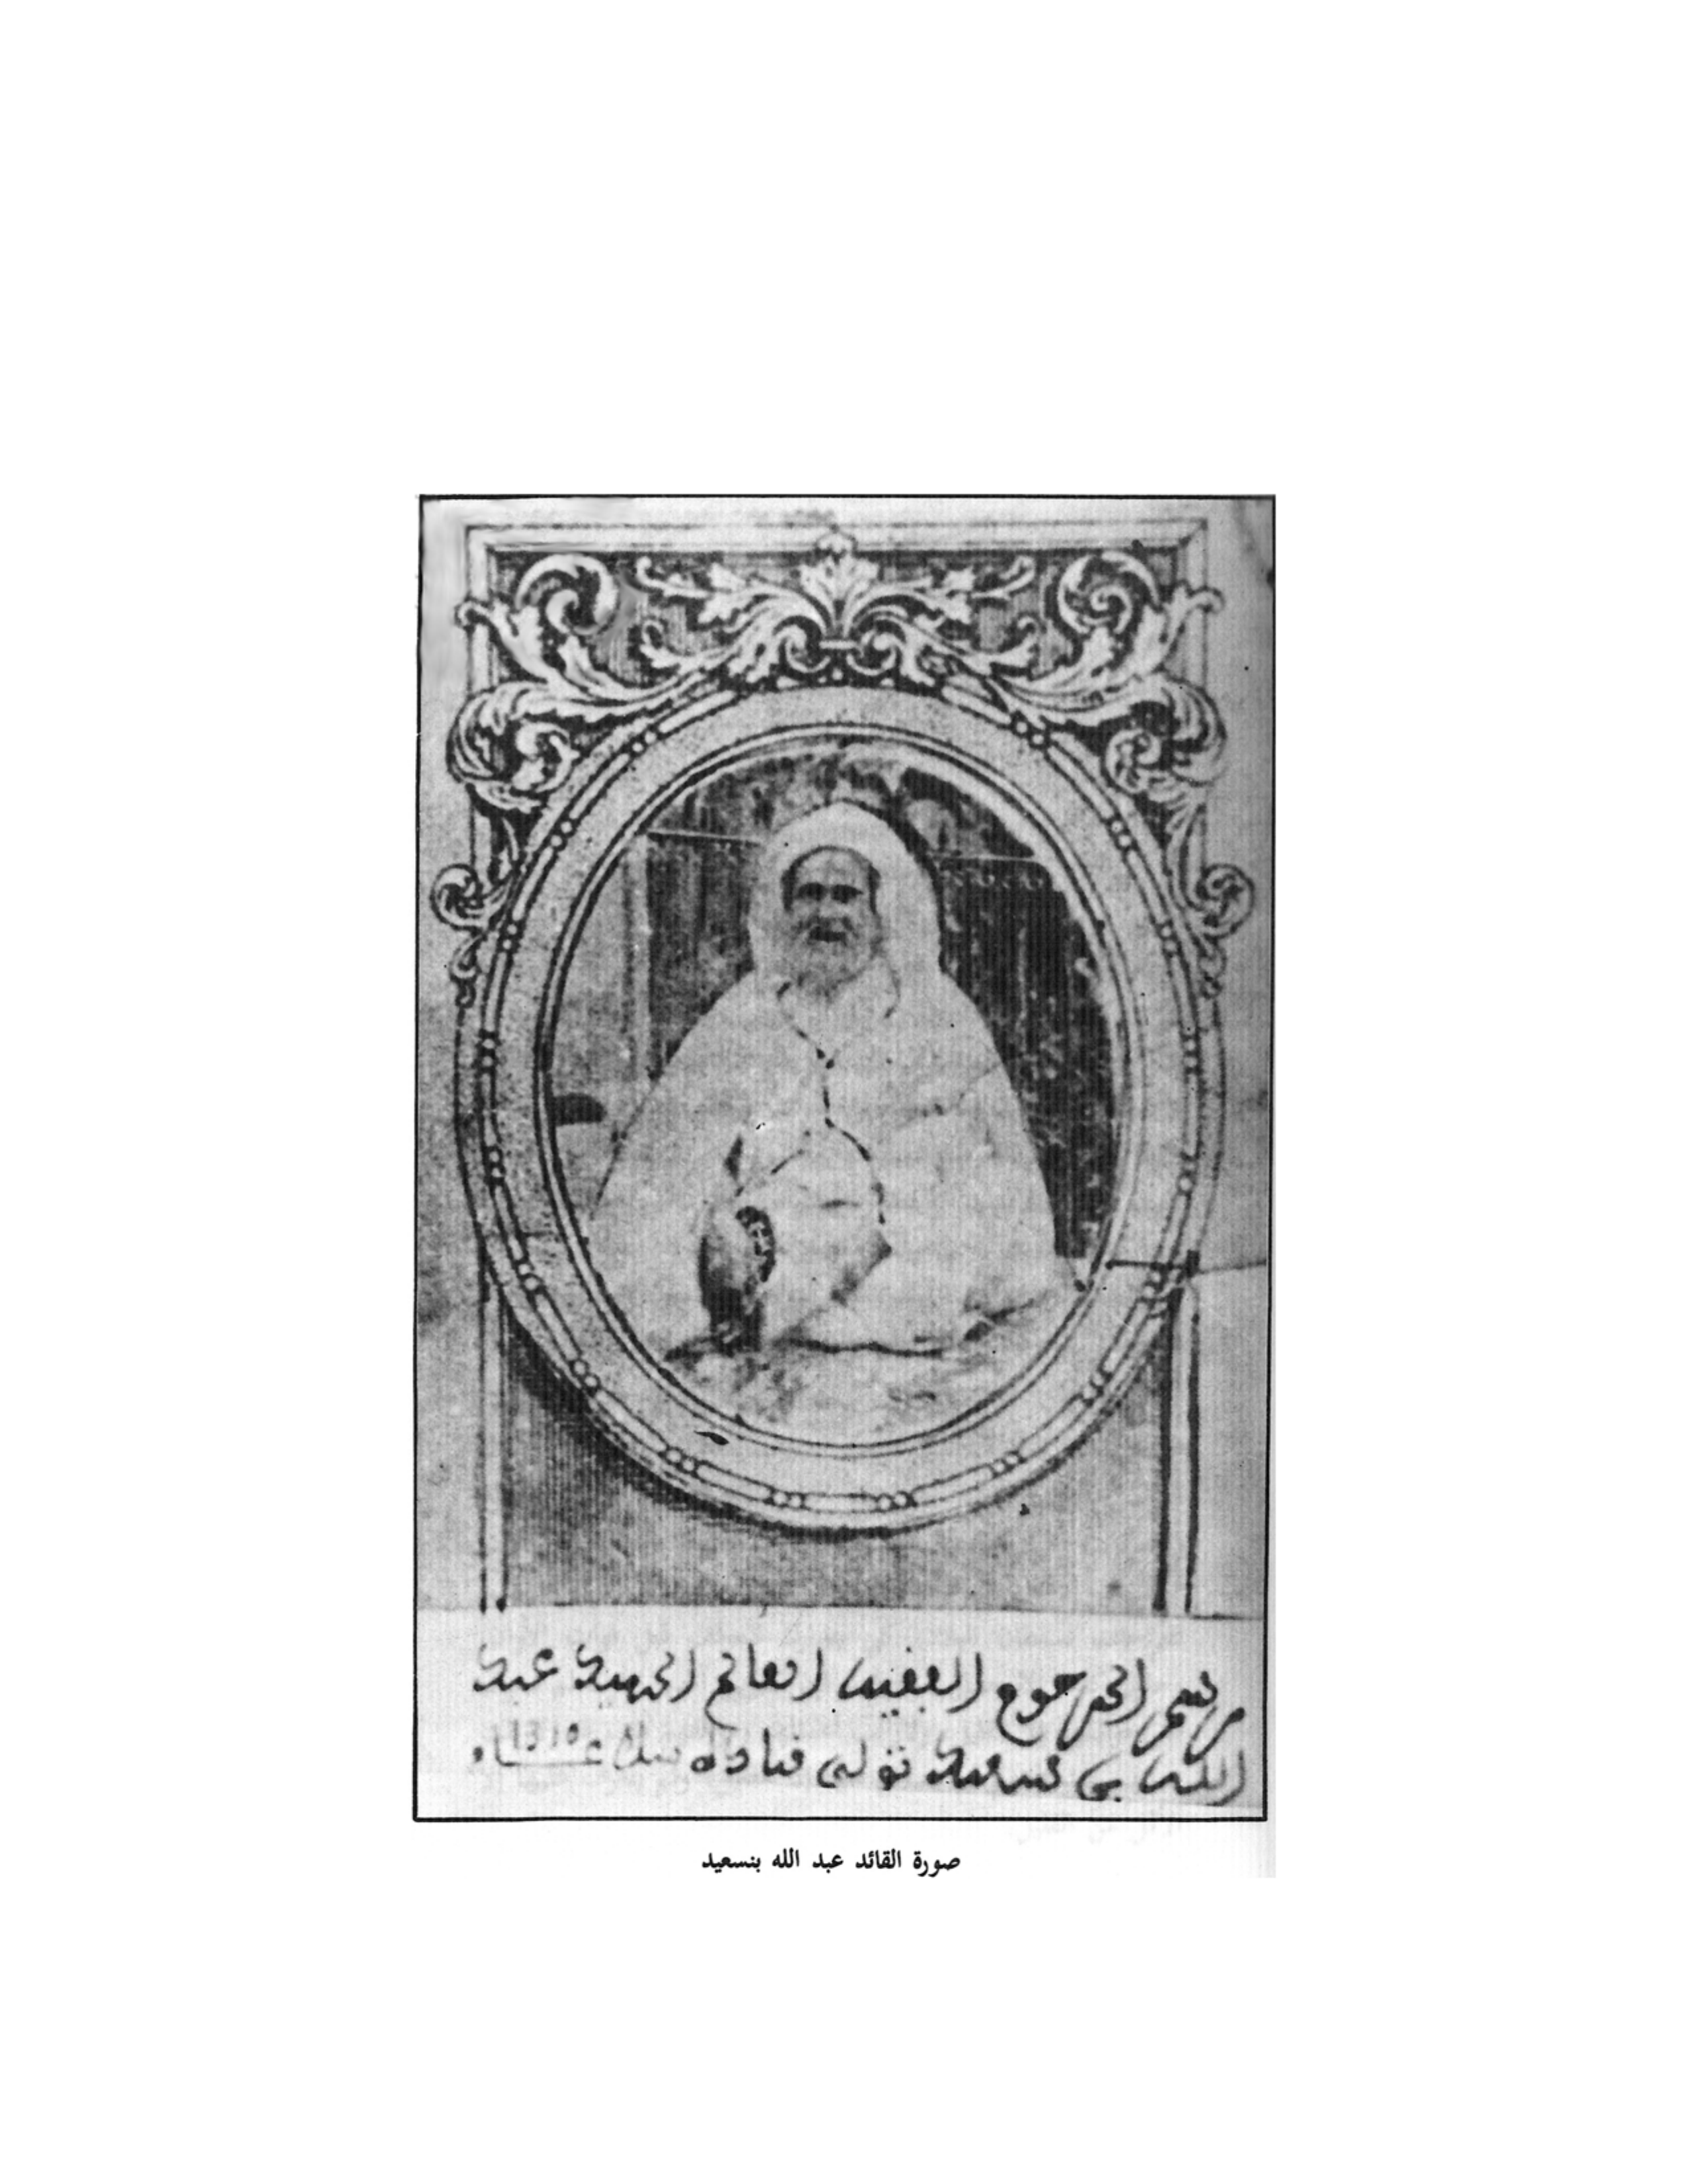 رسم المرحوم الفقيه العالم الجهبذ عبد
الله بن سعيد تولى قيادة سلا عام 1310
صورة القائد عبد الله بنسعيد